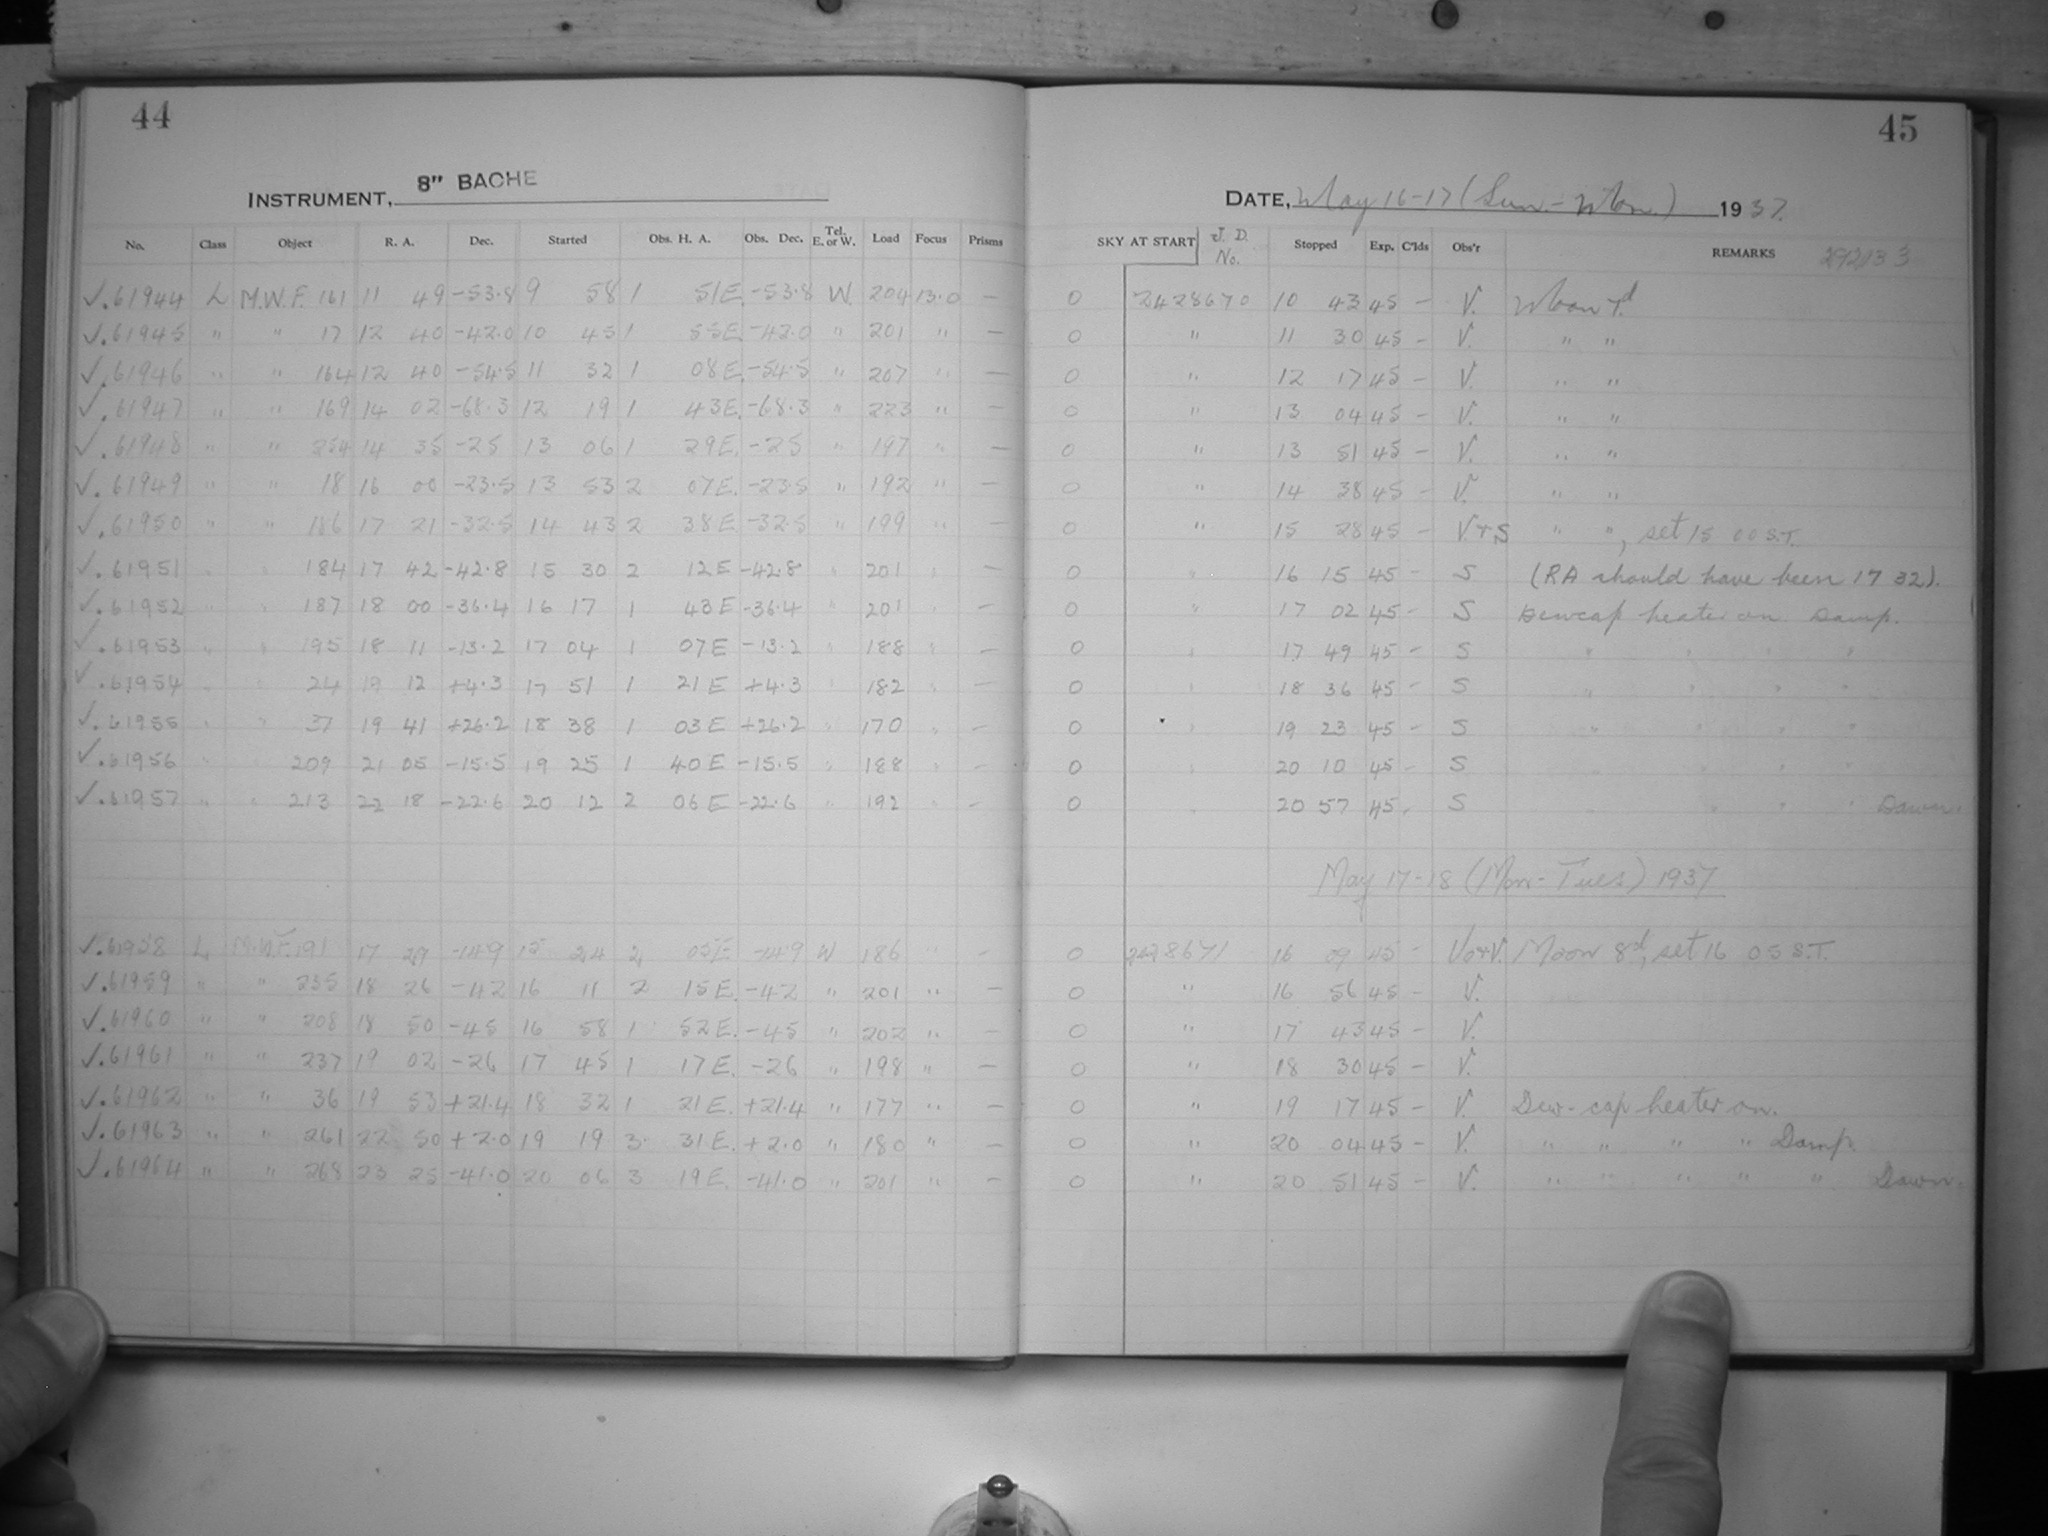 44
45
INSTRUMENT, 8" BACHE
DATE, May 16-17 (Sun.-Mon.) 1937.
No. Class Object R. A. Dec. Started Obs. H. A. Obs. Dec. Tel. E. or W. Load Focus Prisms SKY AT START J. D. No. Stopped Exp. C'lds Obs'r REMARKS
√.61944 L M.W.F. 161 11 49 -53.8 9 58 1 51E -53.8 W. 204 13.0 — 0 2428670 10 43 45 - V. Moon 7d
√.61945 " " 17 12 40 -42.0 10 45 1 55E -42.0 " 201 " — 0 " 11 30 45 - V. " "
√.61946 " " 164 12 40 -54.5 11 32 1 08E. -54.5 " 207 " — 0 " 12 17 45 - V. " "
√.61947 " " 169 14 02 -68.3 12 19 1 43E. -68.3 " 223 " — 0 " 13 04 45 - V. " "
√.61948 " " 254 14 35 -25 13 06 1 29E. -25 " 197 " — 0 " 13 51 45 - V. " "
√.61949 " " 18 16 00 -23.5 13 53 2 07E. -23.5 " 192 " — 0 " 14 38 45 - V. " "
√.61950 " " 186 17 21 -32.5 14 43 2 38E -32.5 " 199 " — 0 " 15 28 45 - V.+S " ", set 15 00 S.T.
√.61951 " " 184 17 42 -42.8 15 30 2 12E -42.8 " 201 " — 0 " 16 15 45 - S (RA should have been 17 32).
√.61952 " " 187 18 00 -36.4 16 17 1 43E -36.4 " 201 " — 0 " 17 02 45 - S Dewcap heater on Damp.
√.61953 " " 195 18 11 -13.2 17 04 1 07E -13.2 " 188 " — 0 " 17 49 45 - S " " " "
√.61954 " " 24 19 12 +4.3 17 51 1 21E +4.3 " 182 " — 0 " 18 36 45 - S " " " "
√.61955 " " 37 19 41 +26.2 18 38 1 03E +26.2 " 170 " — 0 " 19 23 45 - S " " " "
√.61956 " " 209 21 05 -15.5 19 25 1 40E -15.5 " 188 " — 0 " 20 10 45 - S " " " "
√.61957 " " 213 22 18 -22.6 20 12 2 06E -22.6 " 192 " — 0 " 20 57 45 - S " " " " Dawn.
May 17-18 (Mon-Tues) 1937
√.61958 L M.W.F. 191 17 29 -14.9 15 24 2 05E -14.9 W 186 " — 0 2428671 16 09 45 - Moon 8d, set 16 05 S.T.
√.61959 " " 235 18 26 -42 16 11 2 15E. -42 " 201 " — 0 " 16 56 45 - V.
√.61960 " " 208 18 50 -45 16 58 1 52E. -45 " 202 " — 0 " 17 43 45 - V.
√.61961 " " 237 19 02 -26 17 45 1 17E. -26 " 198 " — 0 " 18 30 45 - V.
√.61962 " " 36 19 53 +21.4 18 32 1 21E. +21.4 " 177 " — 0 " 19 17 45 - V. Dew-cap heater on.
√.61963 " " 261 22 50 +2.0 19 19 3 31E. +2.0 " 180 " — 0 " 20 04 45 - V. " " " " Damp.
√.61964 " " 268 23 25 -41.0 20 06 3 19E. -41.0 " 201 " — 0 " 20 51 45 - V. " " " " " Dawn.